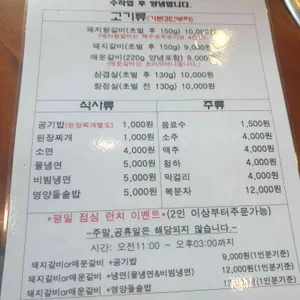 수작업 후 양념합니다.
고기류(기본3인부터)
돼지왕갈비(초벌 후 150g) 10,000원
돼지갈비(초벌 후 150g) 9,000원
매운갈비(220g 양념포함) 9,000원
삼겹살(초벌 후 130g) 10,000원
항정살(초벌 전 130g) 10,000원
식사류
공기밥(된장찌개별도) 1,000원
된장찌개 1,000원
소면 4,000원
물냉면 5,000원
비빔냉면 5,000원
영양돌솥밥 5,000원
주류
음료수 1,500원
소주 4,000원
맥주 4,000원
청하 4,000원
막걸리 4,000원
복분자 12,000원
*평일 점심 런치 이벤트*(2인 이상부터주문가능)
-주말,공휴일은 해당되지 않습니다.-
시간: 오전11:00 ~ 오후03:00까지
돼지갈비or매운갈비 +공기밥 9,000원(1인분기준)
돼지갈비or매운갈비 +냉면(물냉면&비빔냉면) 12,000원(1인분기준)
돼지갈비or매운갈비 +영양돌솥밥 12,000원(1인분기준)